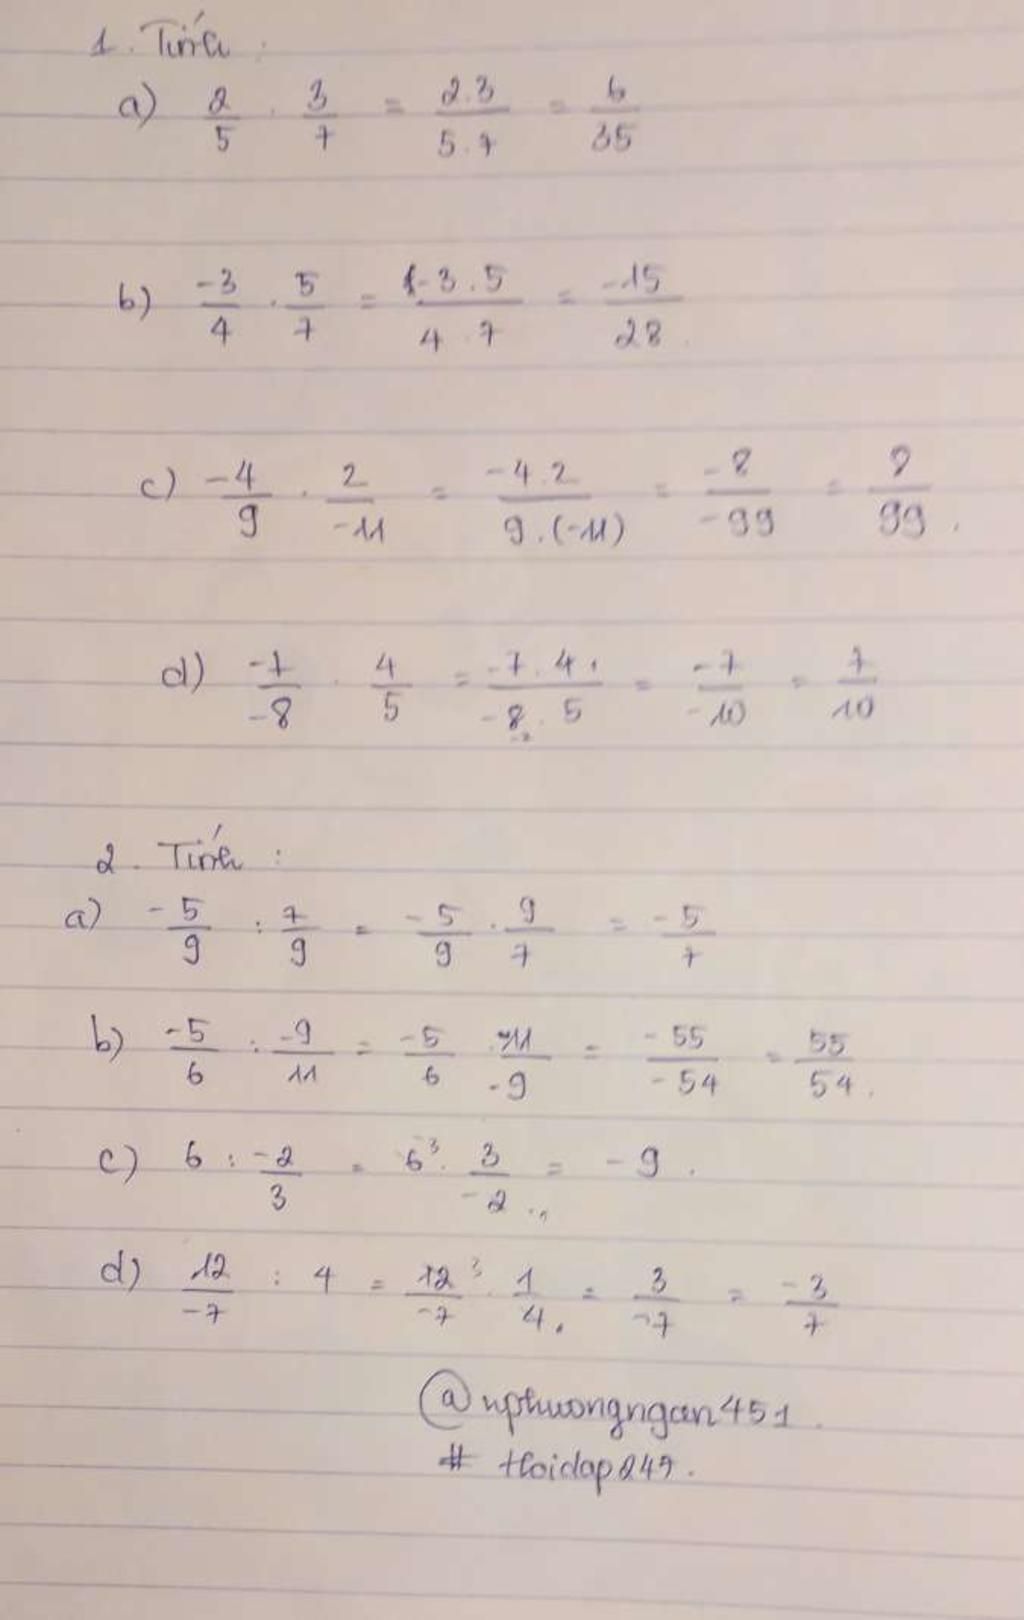 1. Tính :
a) 2/5 . 3/7 = 2.3/5.7 = 6/35
b) -3/4 . 5/7 = -3.5/4.7 = -15/28
c) -4/9 . 2/-11 = -4.2/9.(-11) = -8/-99 = 8/99.
d) -7/-8 . 4/5 = -7.4/-8.5 = -7/-10 = 7/10
2. Tính :
a) -5/9 : 7/9 = -5/9 . 9/7 = -5/7
b) -5/6 : -9/11 = -5/6 . 11/-9 = -55/-54 = 55/54.
c) 6 : -2/3 = 6 . 3/-2 = -9.
d) 12/-7 : 4 = 12/-7 . 1/4 = 3/-7 = -3/7
@nphuongngan451
# Hoidap247.